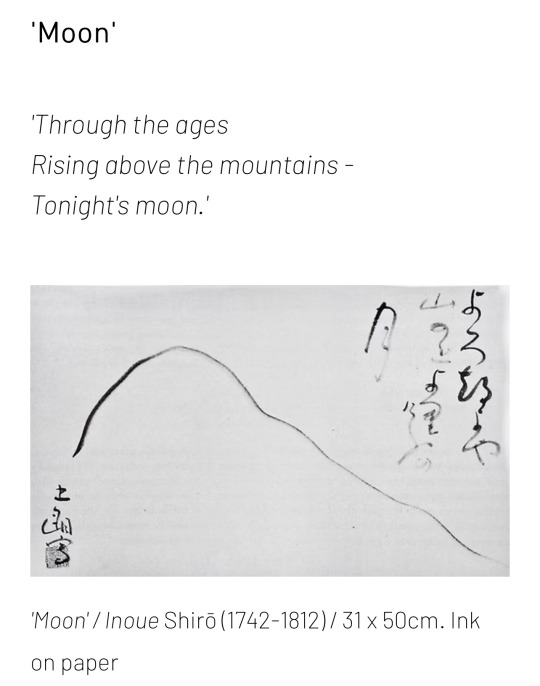 'Moon'
'Through the ages
Rising above the mountains -
Tonight's moon.'
月
士朗
'Moon' / Inoue Shirō (1742-1812) / 31 x 50cm. Ink
on paper